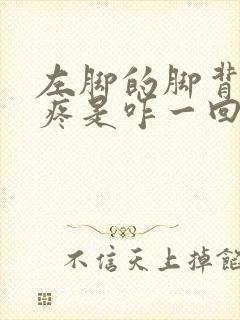 左脚的脚背
疼是咋一回
不信天上掉馅